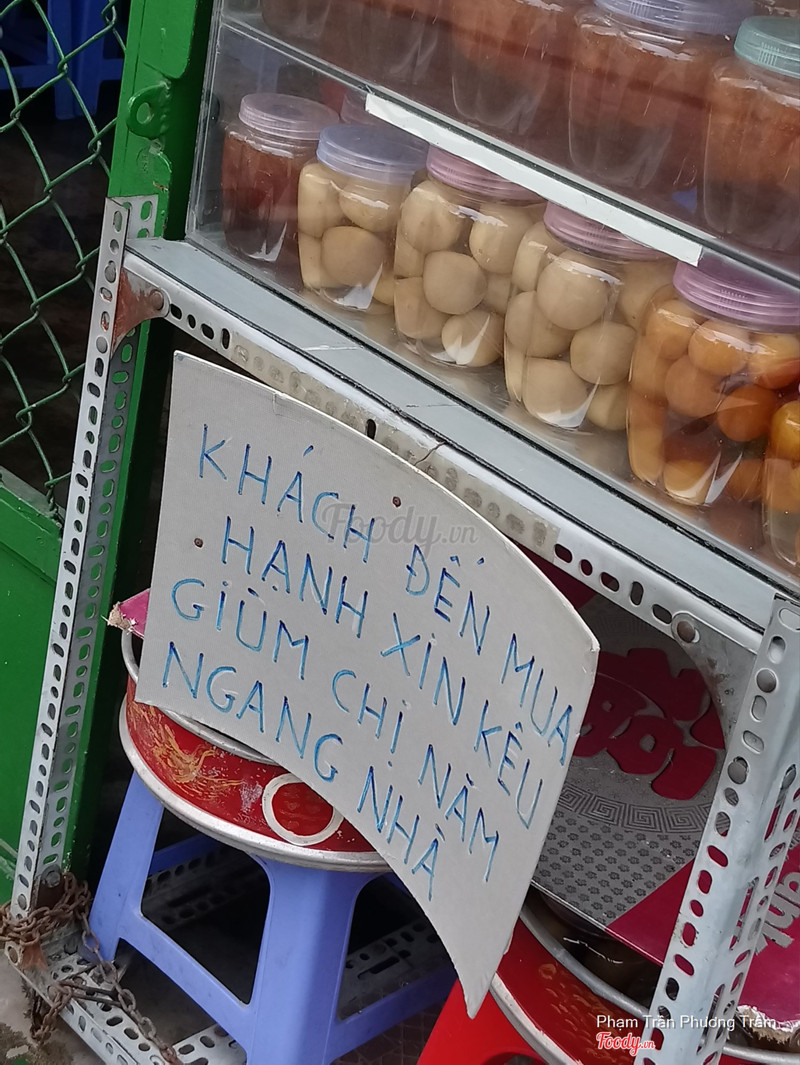 KHÁCH ĐẾN MUA
HẠNH XIN KÊU
GIÙM CHỊ NĂM
NGANG NHÀ
Foody.vn
Phạm Trần Phương Trâm
Foody.vn